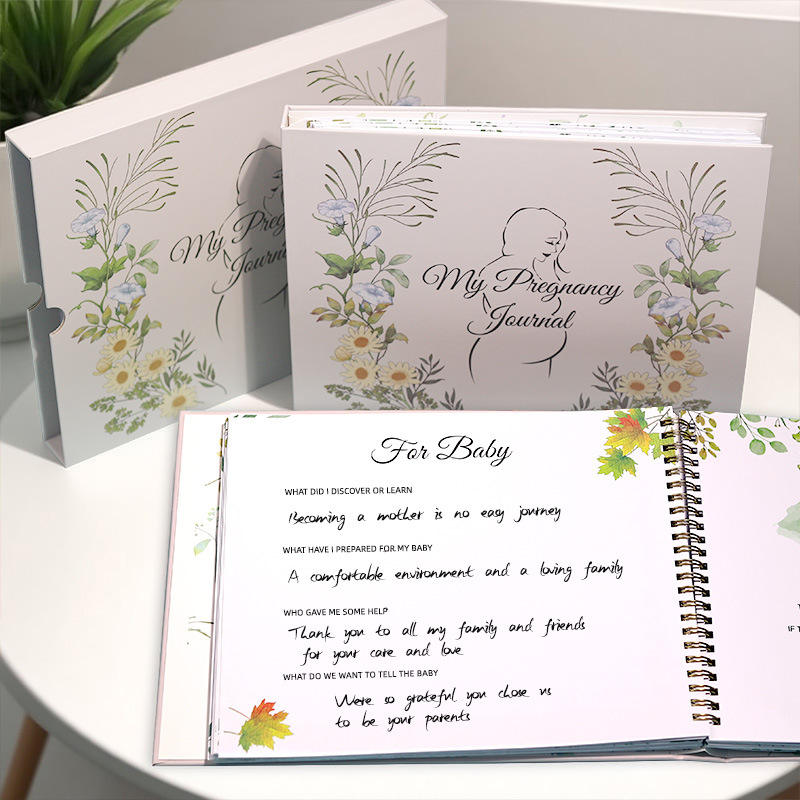 My Preg
Journ
My Pregnancy
Journal
For Baby
WHAT DID I DISCOVER OR LEARN
Becoming a mother is no easy journey
WHAT HAVE I PREPARED FOR MY BABY
A comfortable environment and a loving family
WHO GAVE ME SOME HELP
Thank you to all my family and friends
for your care and love
WHAT DO WE WANT TO TELL THE BABY
We're so grateful you chose us
to be your parents
IF